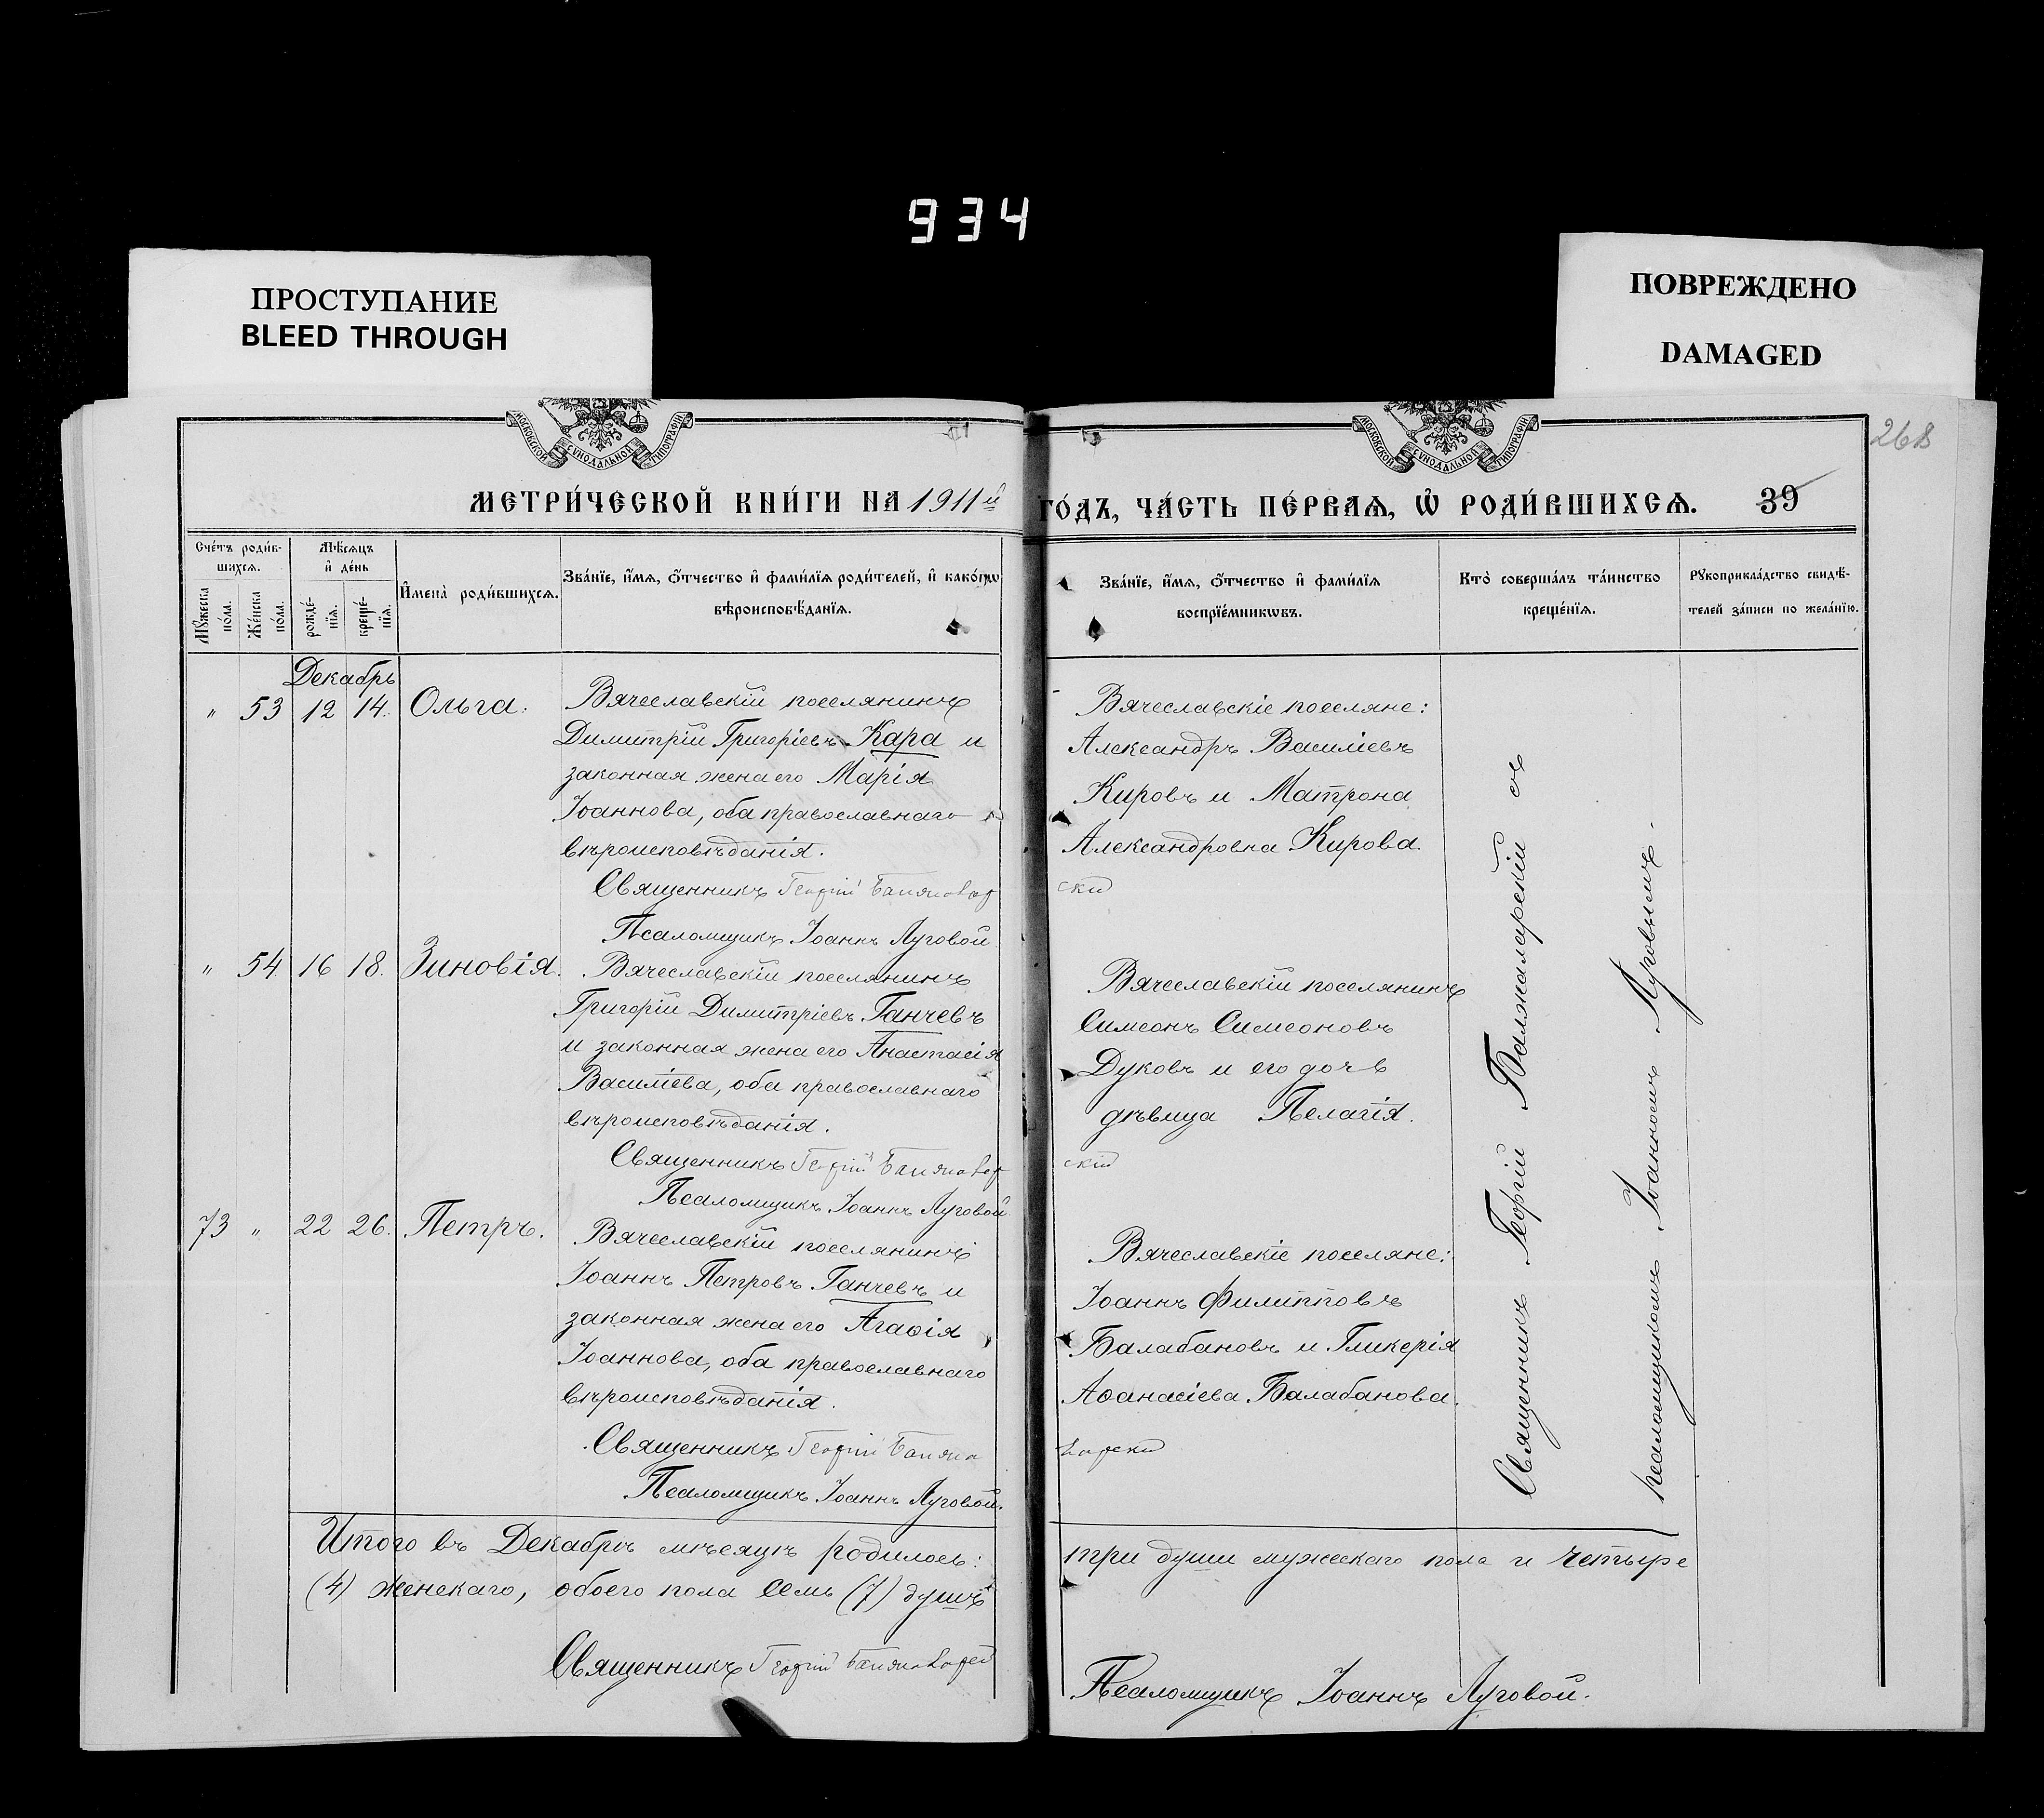 934
ПРОСТУПАНИЕ
BLEED THROUGH
ПОВРЕЖДЕНО
DAMAGED
МОСКОВСКОЙ СѴНОДАЛЬНОЙ ТИПОГРАФІИ
МОСКОВСКОЙ СѴНОДАЛЬНОЙ ТИПОГРАФІИ
268
МЕТРИ́ЧЕСКОЙ КНИ́ГИ НА 1911й ГО́ДЪ, ЧА́СТЬ ПЕ́РВАѦ, Ѡ҆ РОДИ́ВШИХСѦ. 39
Сче́тъ роди́в-
шихсѧ.
Мꙋ́жеска по́ла.
Же́нска по́ла.
Мѣ́сѧцъ
и҆ де́нь
рожде́-нїѧ.
креще́-нїѧ.
И҆мена̀ роди́вшихсѧ.
Зва́нїе, и҆́мѧ, ѻ҆́тчество и҆ фами́лїѧ роди́телей, и҆ како́гѡ
вѣроисповѣ́данїѧ.
Зва́нїе, и҆́мѧ, ѻ҆́тчество и҆ фами́лїѧ
воспрїе́мникѡвъ.
Кто̀ соверша́лъ та́инство
креще́нїѧ.
Рꙋкоприкла́дство свидѣ́-
телей за́писи по жела́нїю.
Декабрь
" 53 12 14. Ольга.
Вячеславскій поселянинъ
Димитрій Григоріевъ Кара и
законная жена его Марія
Іоаннова, оба православнаго
вѣроисповѣданія.
Священникъ Георгій
Псаломщикъ Іоаннъ Луговой
Вячеславскіе поселяне:
Александръ Василіевъ
Кировъ и Матрона
Александровна Кирова.
скій
" 54 16 18. Зиновія.
Вячеславскій поселянинъ
Григорій Димитріевъ Ганчевъ
и законная жена его Анастасія
Василіева, оба православнаго
вѣроисповѣданія.
Священникъ Георгій
Псаломщикъ Іоаннъ Луговой
Вячеславскій поселянинъ
Симеонъ Симеоновъ
Дуковъ и его дочь
дѣвица Пелагія.
скій
73 " 22 26. Петръ.
Вячеславскій поселянинъ
Іоаннъ Петровъ Ганчевъ и
законная жена его Агаѳія
Іоаннова, оба православнаго
вѣроисповѣданія.
Священникъ Георгій
Псаломщикъ Іоаннъ Луговой.
Вячеславскіе поселяне:
Іоаннъ Филипповъ
Балабановъ и Гликерія
Аѳанасіева Балабанова.
Священникъ Георгій Балжаларскій съ
псаломщикомъ Іоанномъ Луговымъ.
Итого въ Декабрѣ мѣсяцѣ родилось: три души мужескаго пола и четыре
(4) женскаго, обоего пола семь (7) душъ
Священникъ Георгій
Псаломщикъ Іоаннъ Луговой.